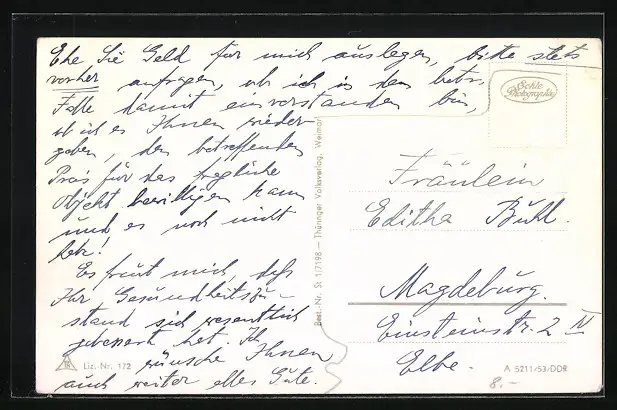 Ehe Sie Geld für mich auslegen, bitte stets
vorher anfragen, ob ich in dem betr.
Falle damit einverstanden bin,
ob ich es Ihnen wieder-
geben, den betreffenden
Preis für das fragliche
Objekt bewilligen kann
und es noch nicht
habe!
Es freut mich, daß
Ihr Gesundheitszu-
stand sich wesentlich
gebessert hat. Ich
wünsche Ihnen
auch weiter alles Gute.
Liz.-Nr. 172
Best.-Nr. St 1/7198 — Thüringer Volksverlag, Weimar
Echte
Photographie
Fräulein
Editha Buhl.
Magdeburg.
Einsteinstr. 2 IV
Elbe.
A 5211/53/DDR
8.-